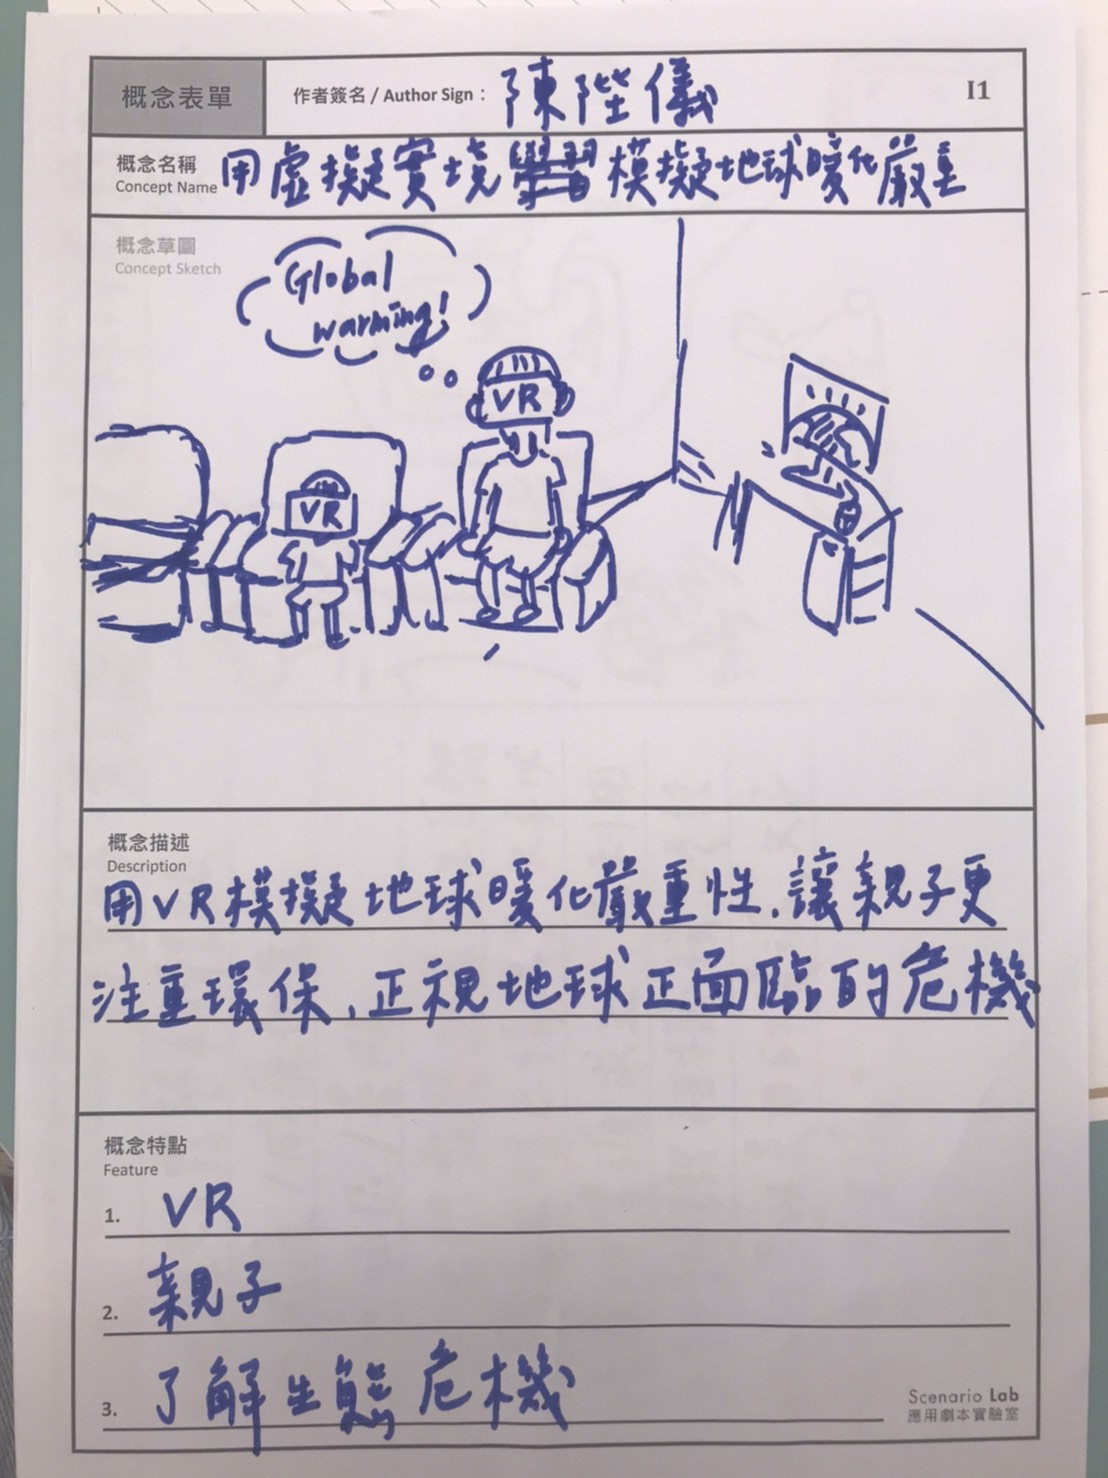 概念表單
作者簽名 / Author Sign : 陳陞儀
I1
概念名稱
Concept Name
用虛擬實境學習模擬地球暖化嚴重
概念草圖
Concept Sketch
Global
warming!
VR
VR
概念描述
Description
用VR模擬地球暖化嚴重性,讓親子更
注重環保,正視地球正面臨的危機
概念特點
Feature
1. VR
2. 親子
3. 了解生態危機
Scenario Lab
應用劇本實驗室